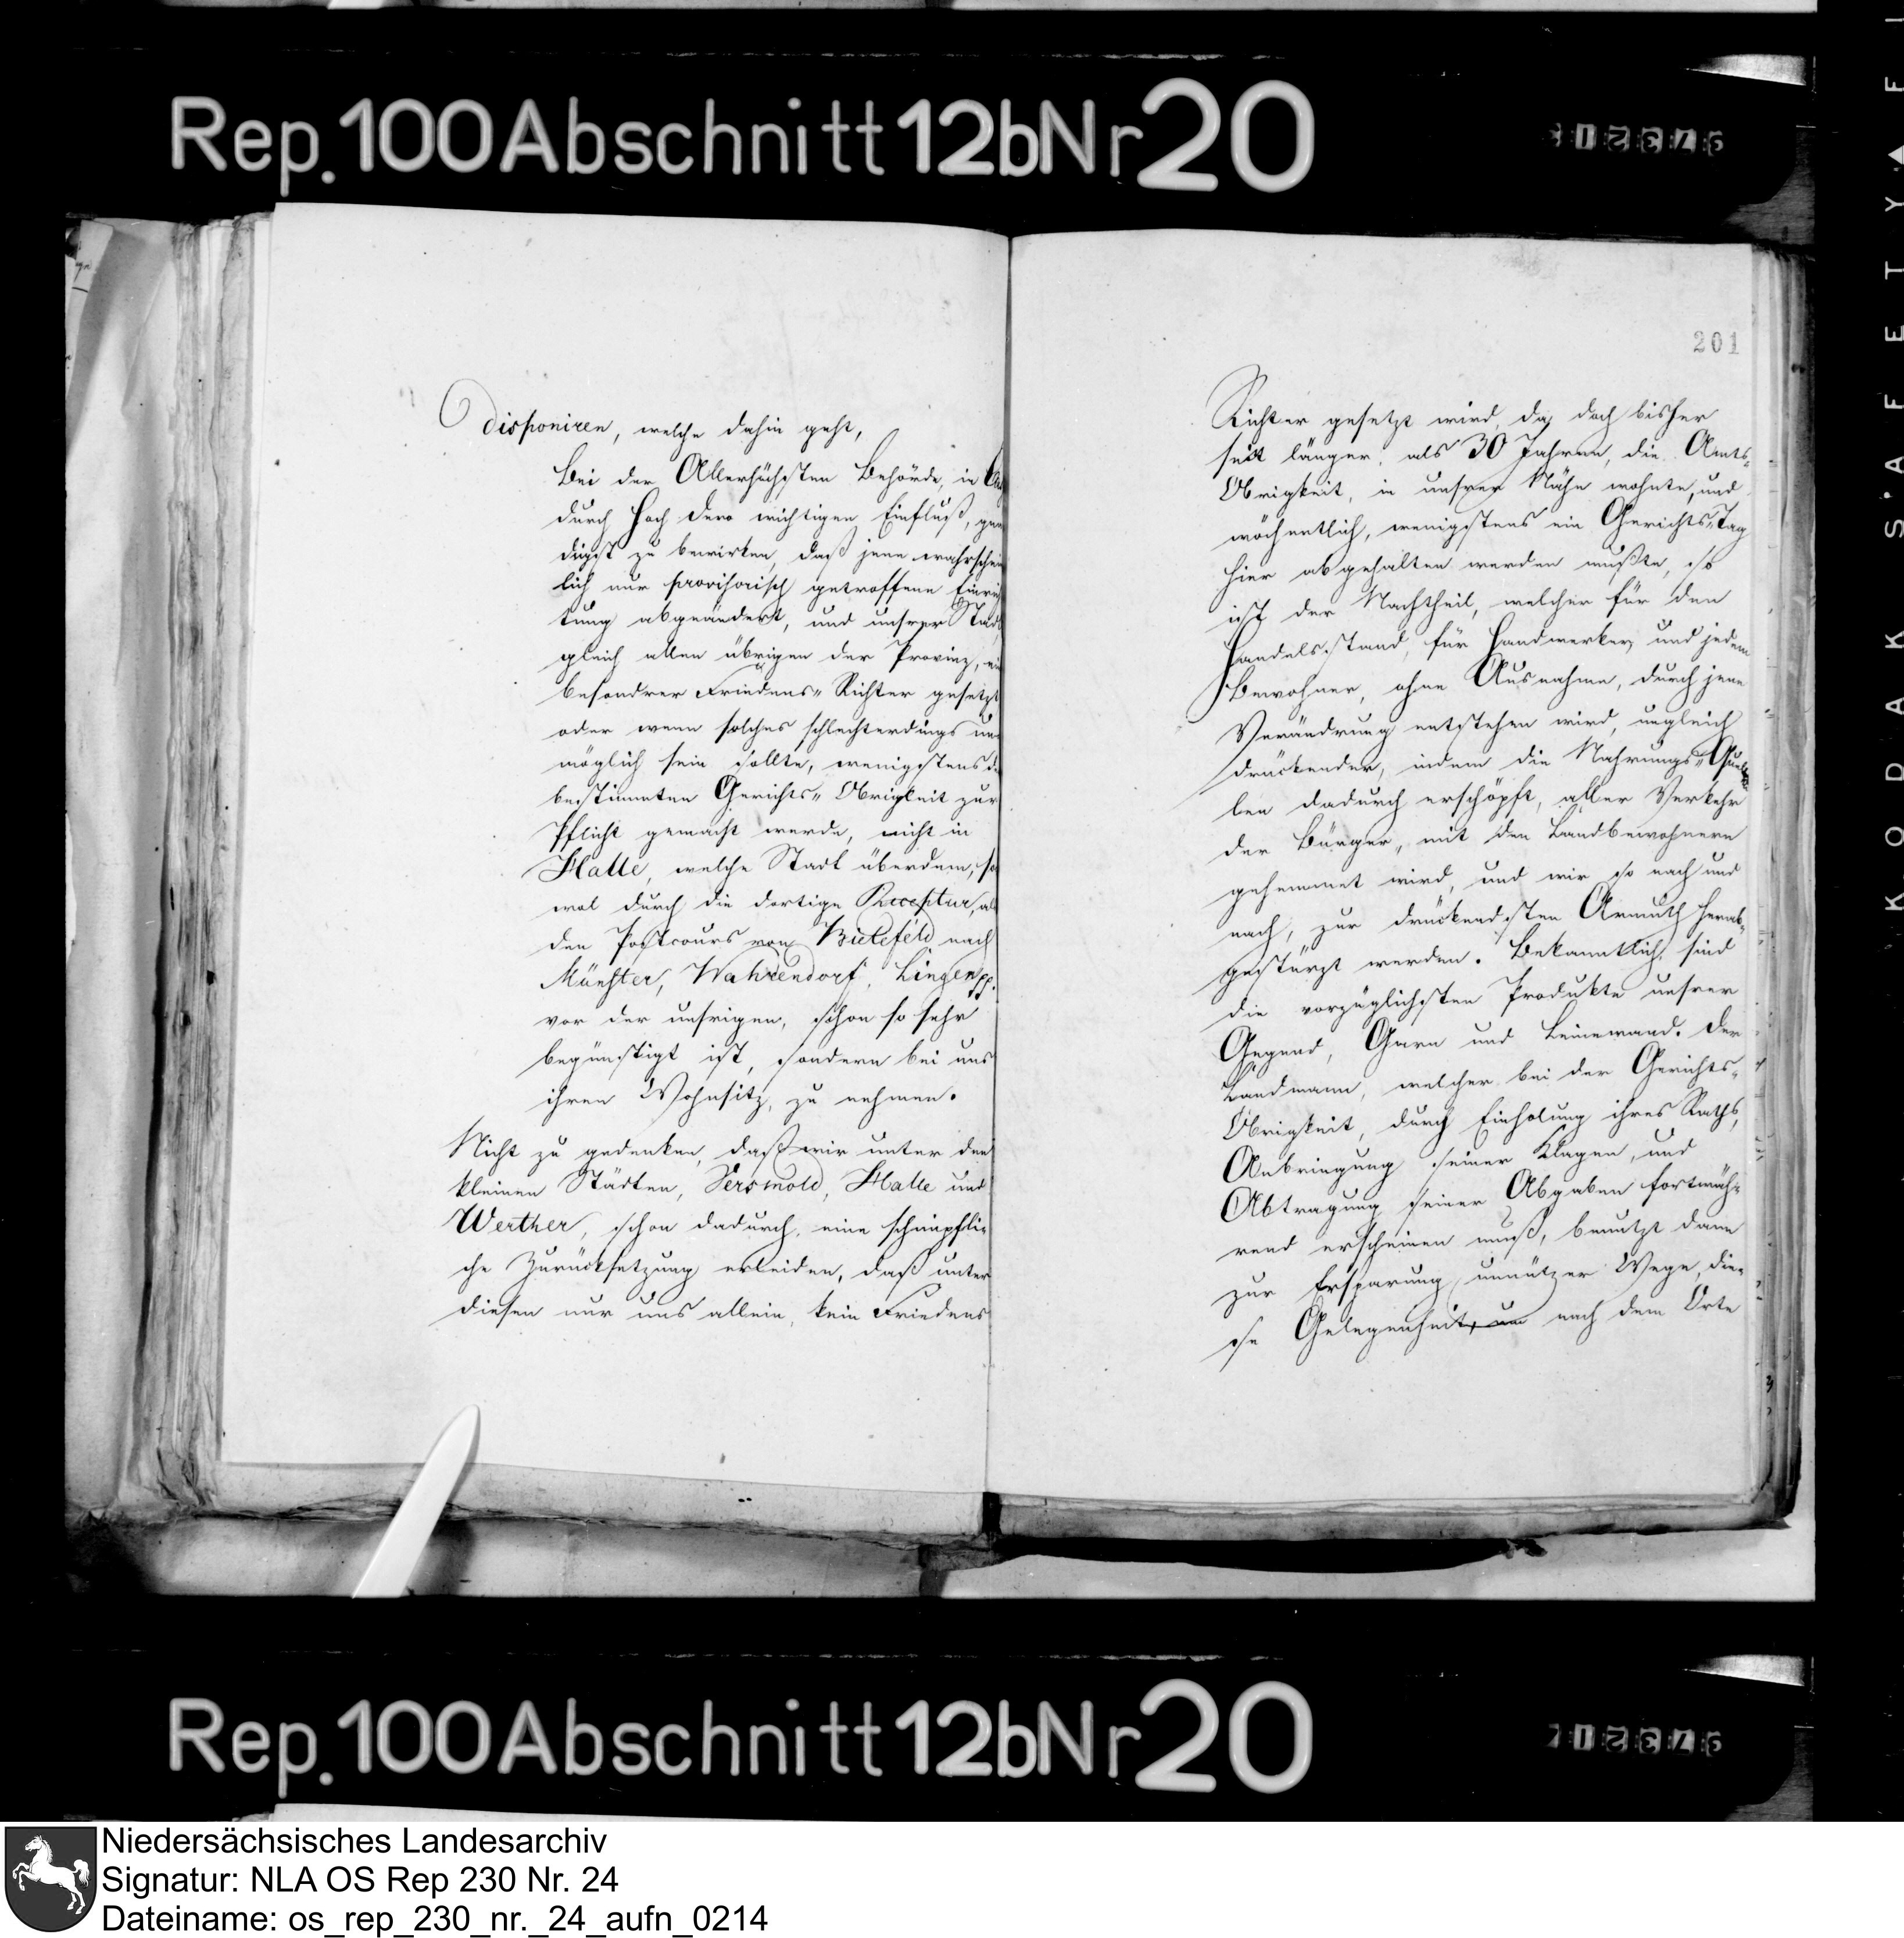 Rep. 100 Abschnitt 12b Nr 20
disponiren, welche dahin geht,
Bei der Allerhöchsten Behörde, in
durch Hoch dero wichtigen Einfluß, gnä
digst zu bewirken, daß jene wahrschein
lich nur provisorisch getroffene Einrich
tung abgeändert, und unsrer Stadt
gleich allen übrigen der Provinz, ein
besondrer Friedens„ Richter gesetzt
oder wenn solches schlechterdings un
möglich sein sollte, wenigstens d
bestimmten Gerichts„ Obrigkeit zur
Pflicht gemacht werde, nicht in
Halle, welche Stadt überdem, so
wol durch die dortige Receptur, als
den Postcours von Bielefeld nach
Münster, Wahrendorf, Lingen pp.
vor der unsrigen, schon so sehr
begünstigt ist, sondern bei uns
ihren Wohnsitz, zu nehmen.
Nicht zu gedenken, daß wir unter den
kleinen Städten, Versmold, Halle und
Werther, schon dadurch, eine schimpfli-
che Zurücksetzung erleiden, daß unter
diesen nur uns allein, kein Friedens
201
Richter gesetzt wird, da doch bisher
seit länger, als 30 Jahren, die Amts-
Obrigkeit, in unsrer Nähe wohnte, und
wöchentlich, wenigstens ein Gerichts„Tag
hier abgehalten werden mußte, so
ist der Nachtheil, welcher für den
Handelsstand, für Handwerker, und jedem
Bewohner, ohne Ausnahme, durch jene
Verändrung entstehen wird, ungleich
drückender, indem die Nahrungs„ Quel
len dadurch erschöpft, aller Verkehr
der Bürger, mit den Landbewohnern
gehemmet wird, und wir so nach und
nach, zur drückendsten Armuth herab-
gestürzt werden. Bekanntlich, sind
die vorzüglichsten Produkte unsrer
Gegend, Garn und Leinewand. Der
Landmann, welcher bei der Gerichts-
Obrigkeit, durch Einholung ihres Raths,
Anbringung seiner Klagen, und
Abtragung seiner Abgaben fortwäh-
rend erscheinen muß, benutzt dann
zur Ersparung unnützer Wege, die-
se Gelegenheit, um nach dem Orte
Rep. 100 Abschnitt 12b Nr 20
KODAK S'AFETY▲FI
Niedersächsisches Landesarchiv
Signatur: NLA OS Rep 230 Nr. 24
Dateiname: os_rep_230_nr._24_aufn_0214